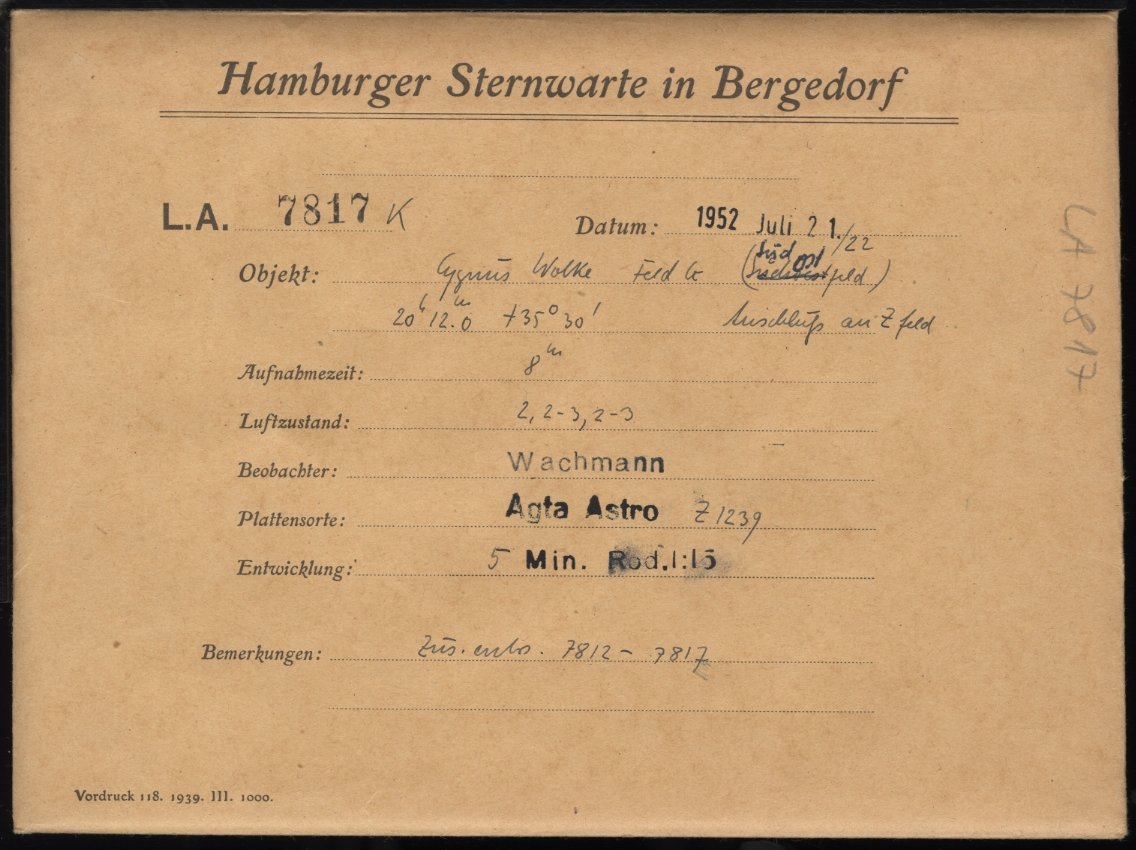 Hamburger Sternwarte in Bergedorf
L.A. 7817 K
Datum: 1952 Juli 21./22
Objekt: Cygnus Wolke Feld G (Südostfeld)
20h 12.m0 +35° 30' Anschluss an Z feld
Aufnahmezeit: 8m
Luftzustand: 2, 2-3, 2-3
Beobachter: Wachmann
Plattensorte: Agfa Astro Z 1239
Entwicklung: 5 Min. Rod. 1:15
Bemerkungen: Zus. entw. 7812 - 7817
Vordruck 118. 1939. III. 1000.
LA 7817